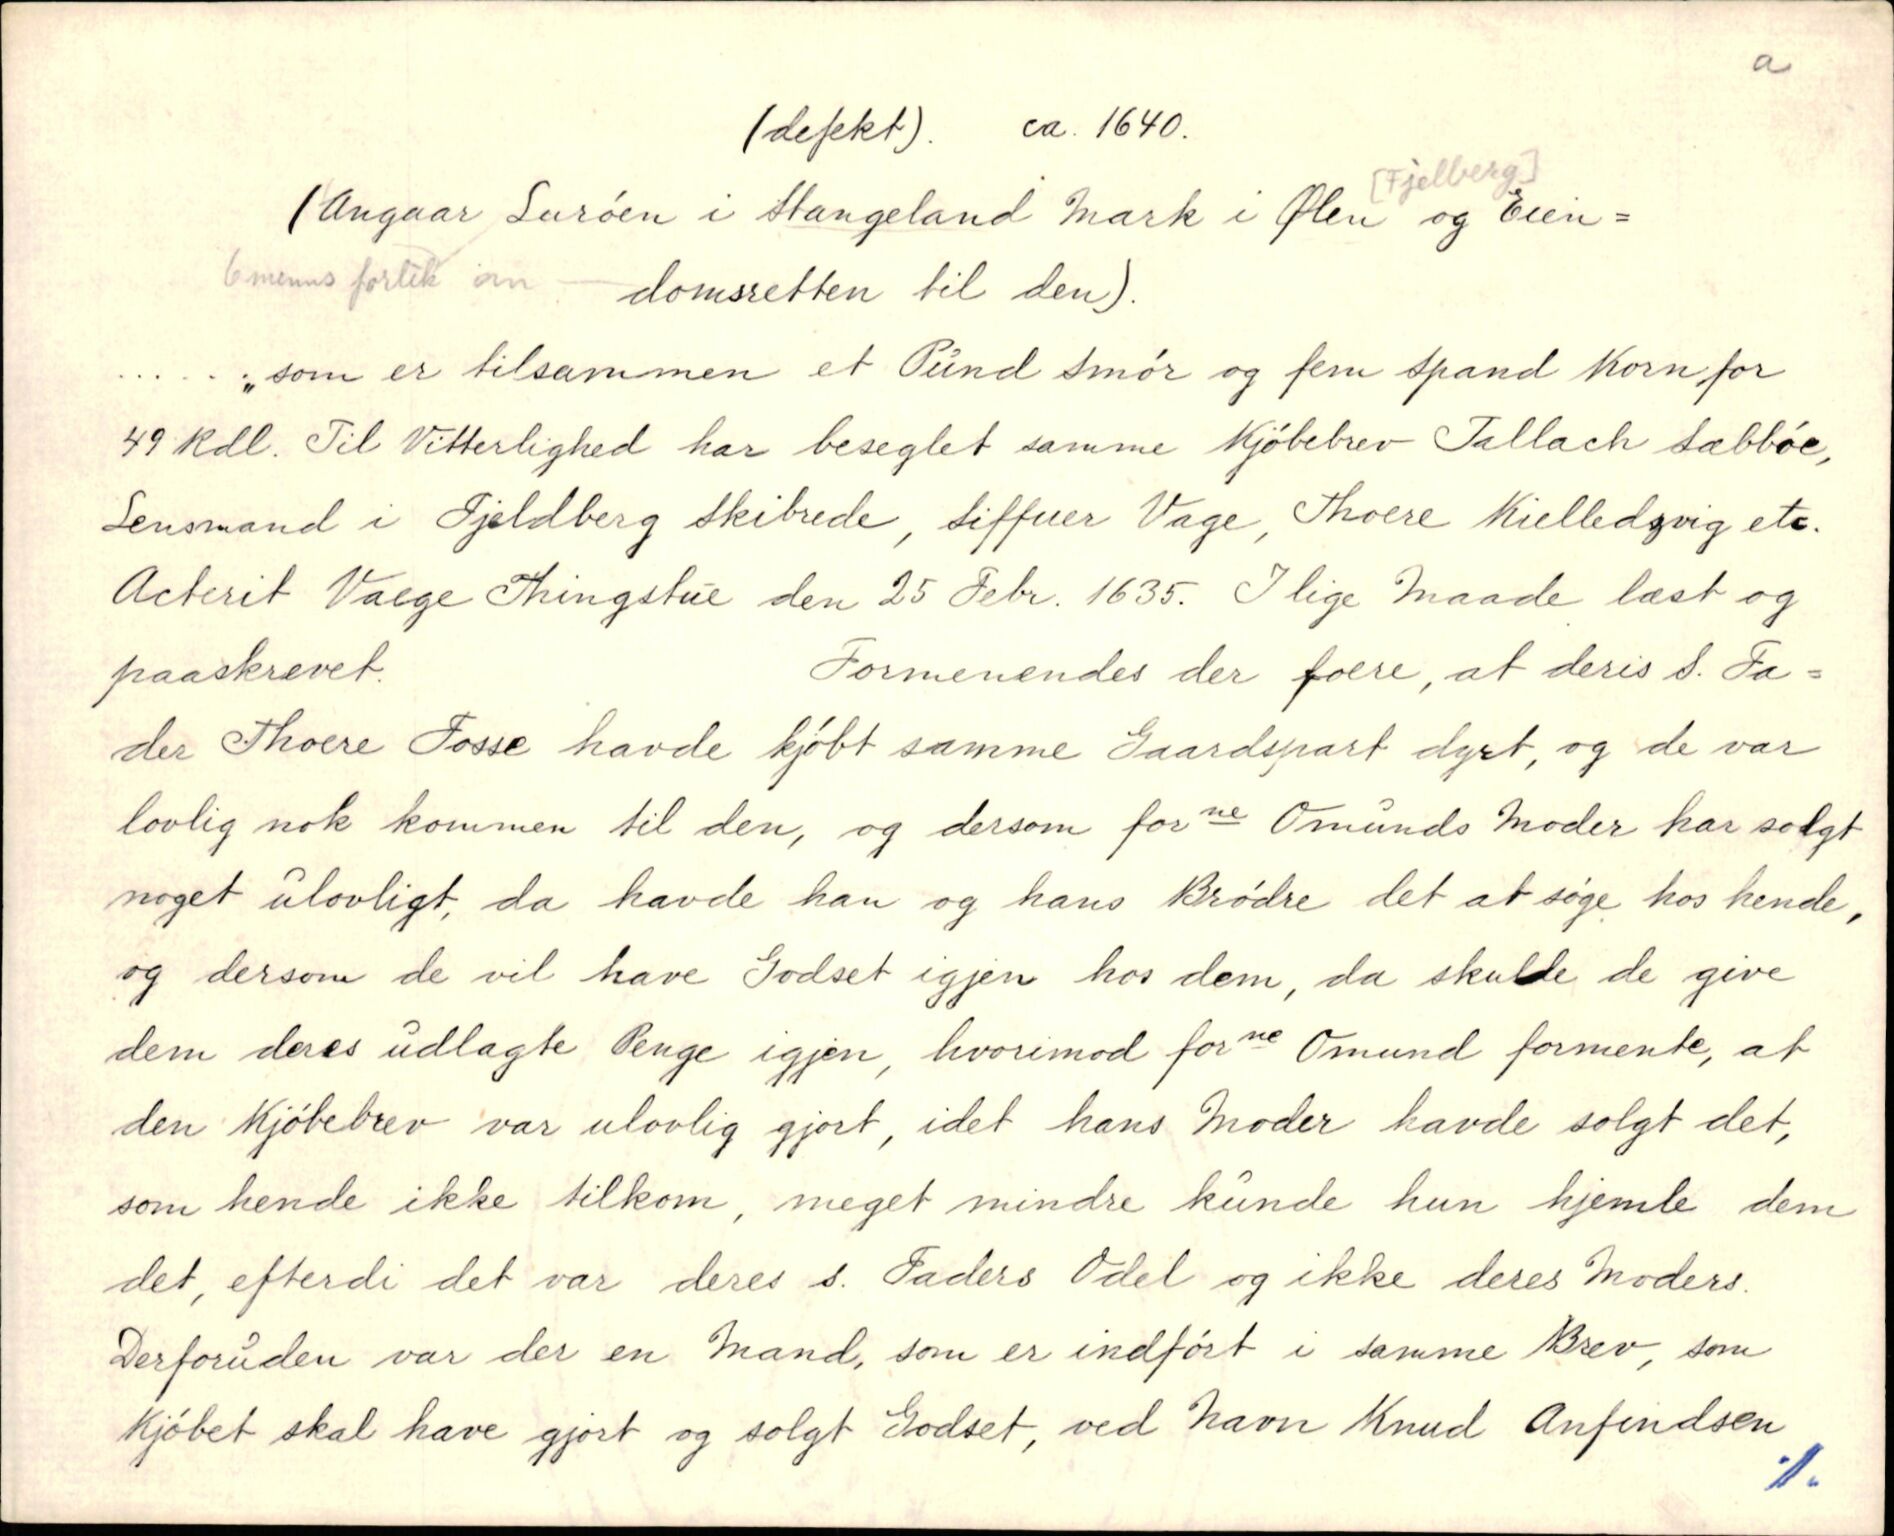 a
(defekt). ca. 1640.
[Fjelberg]
(Angaar Suróen i Stangeland Mark i Ølen og Eien=
6 menns forlik om — domsretten til den).
. . . . . „som er tilsammen et Pund Smór og fem Spand Korn for
49 Rdl. Til Vitterlighed har beseglet samme Kjóbebrev Tallach Sæbbóe,
Lensmand i Fjeldberg Skibrede, Siffuer Vage, Thoere Kielledsvig etc.
Acterit Vaege Thingstue den 25 Febr. 1635. I lige Maade læst og
paaskrevet. Formenendes der foere, at deris S. Fa=
der Thoere Fosse havde kjóbt samme Gaardspart dyrt, og de var
lovlig nok kommen til den, og dersom forne Omunds Moder har solgt
noget ulovligt, da havde han og hans Bródre det at sóge hos hende,
og dersom de vil have Godset igjen hos dem, da skulde de give
dem deres udlagte Penge igjen, hvorimod forne Omund formente, at
den Kjóbebrev var ulovlig gjort, idet hans Moder havde solgt det,
som hende ikke tilkom, meget mindre kunde hun hjemle dem
det, efterdi det var deres s. Faders Odel og ikke deres Moders.
Derforuden var der en Mand, som er indfórt i samme Brev, som
Kjóbet skal have gjort og solgt Godset, ved Navn Knud Anfindsen
./.